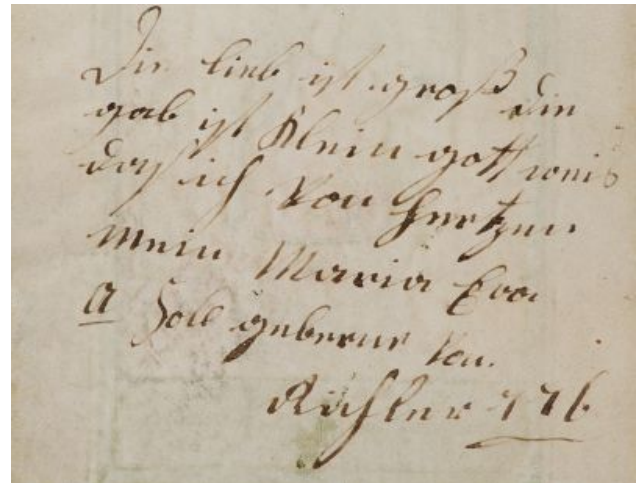 Die lieb ist groß die
gab ist Klein gott weis
das ich Von Hertzen
mein Maria Eva
a Holl geberne Von
Richter 176